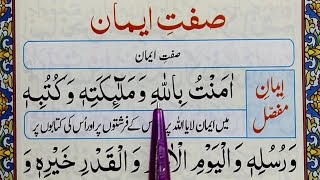 صفتِ ایمان
صفتِ ایمان
ایمانِ مفصّل
اٰمَنْتُ بِاللّٰهِ وَمَلٰٓئِكَتِهٖ وَكُتُبِهٖ
میں ایمان لایا اللہ پر اس کے فرشتوں پر اور اُس کی کتابوں پر
وَرُسُلِهٖ وَالْيَوْمِ الْاٰ وَالْقَدْرِ خَيْرِهٖ وَ